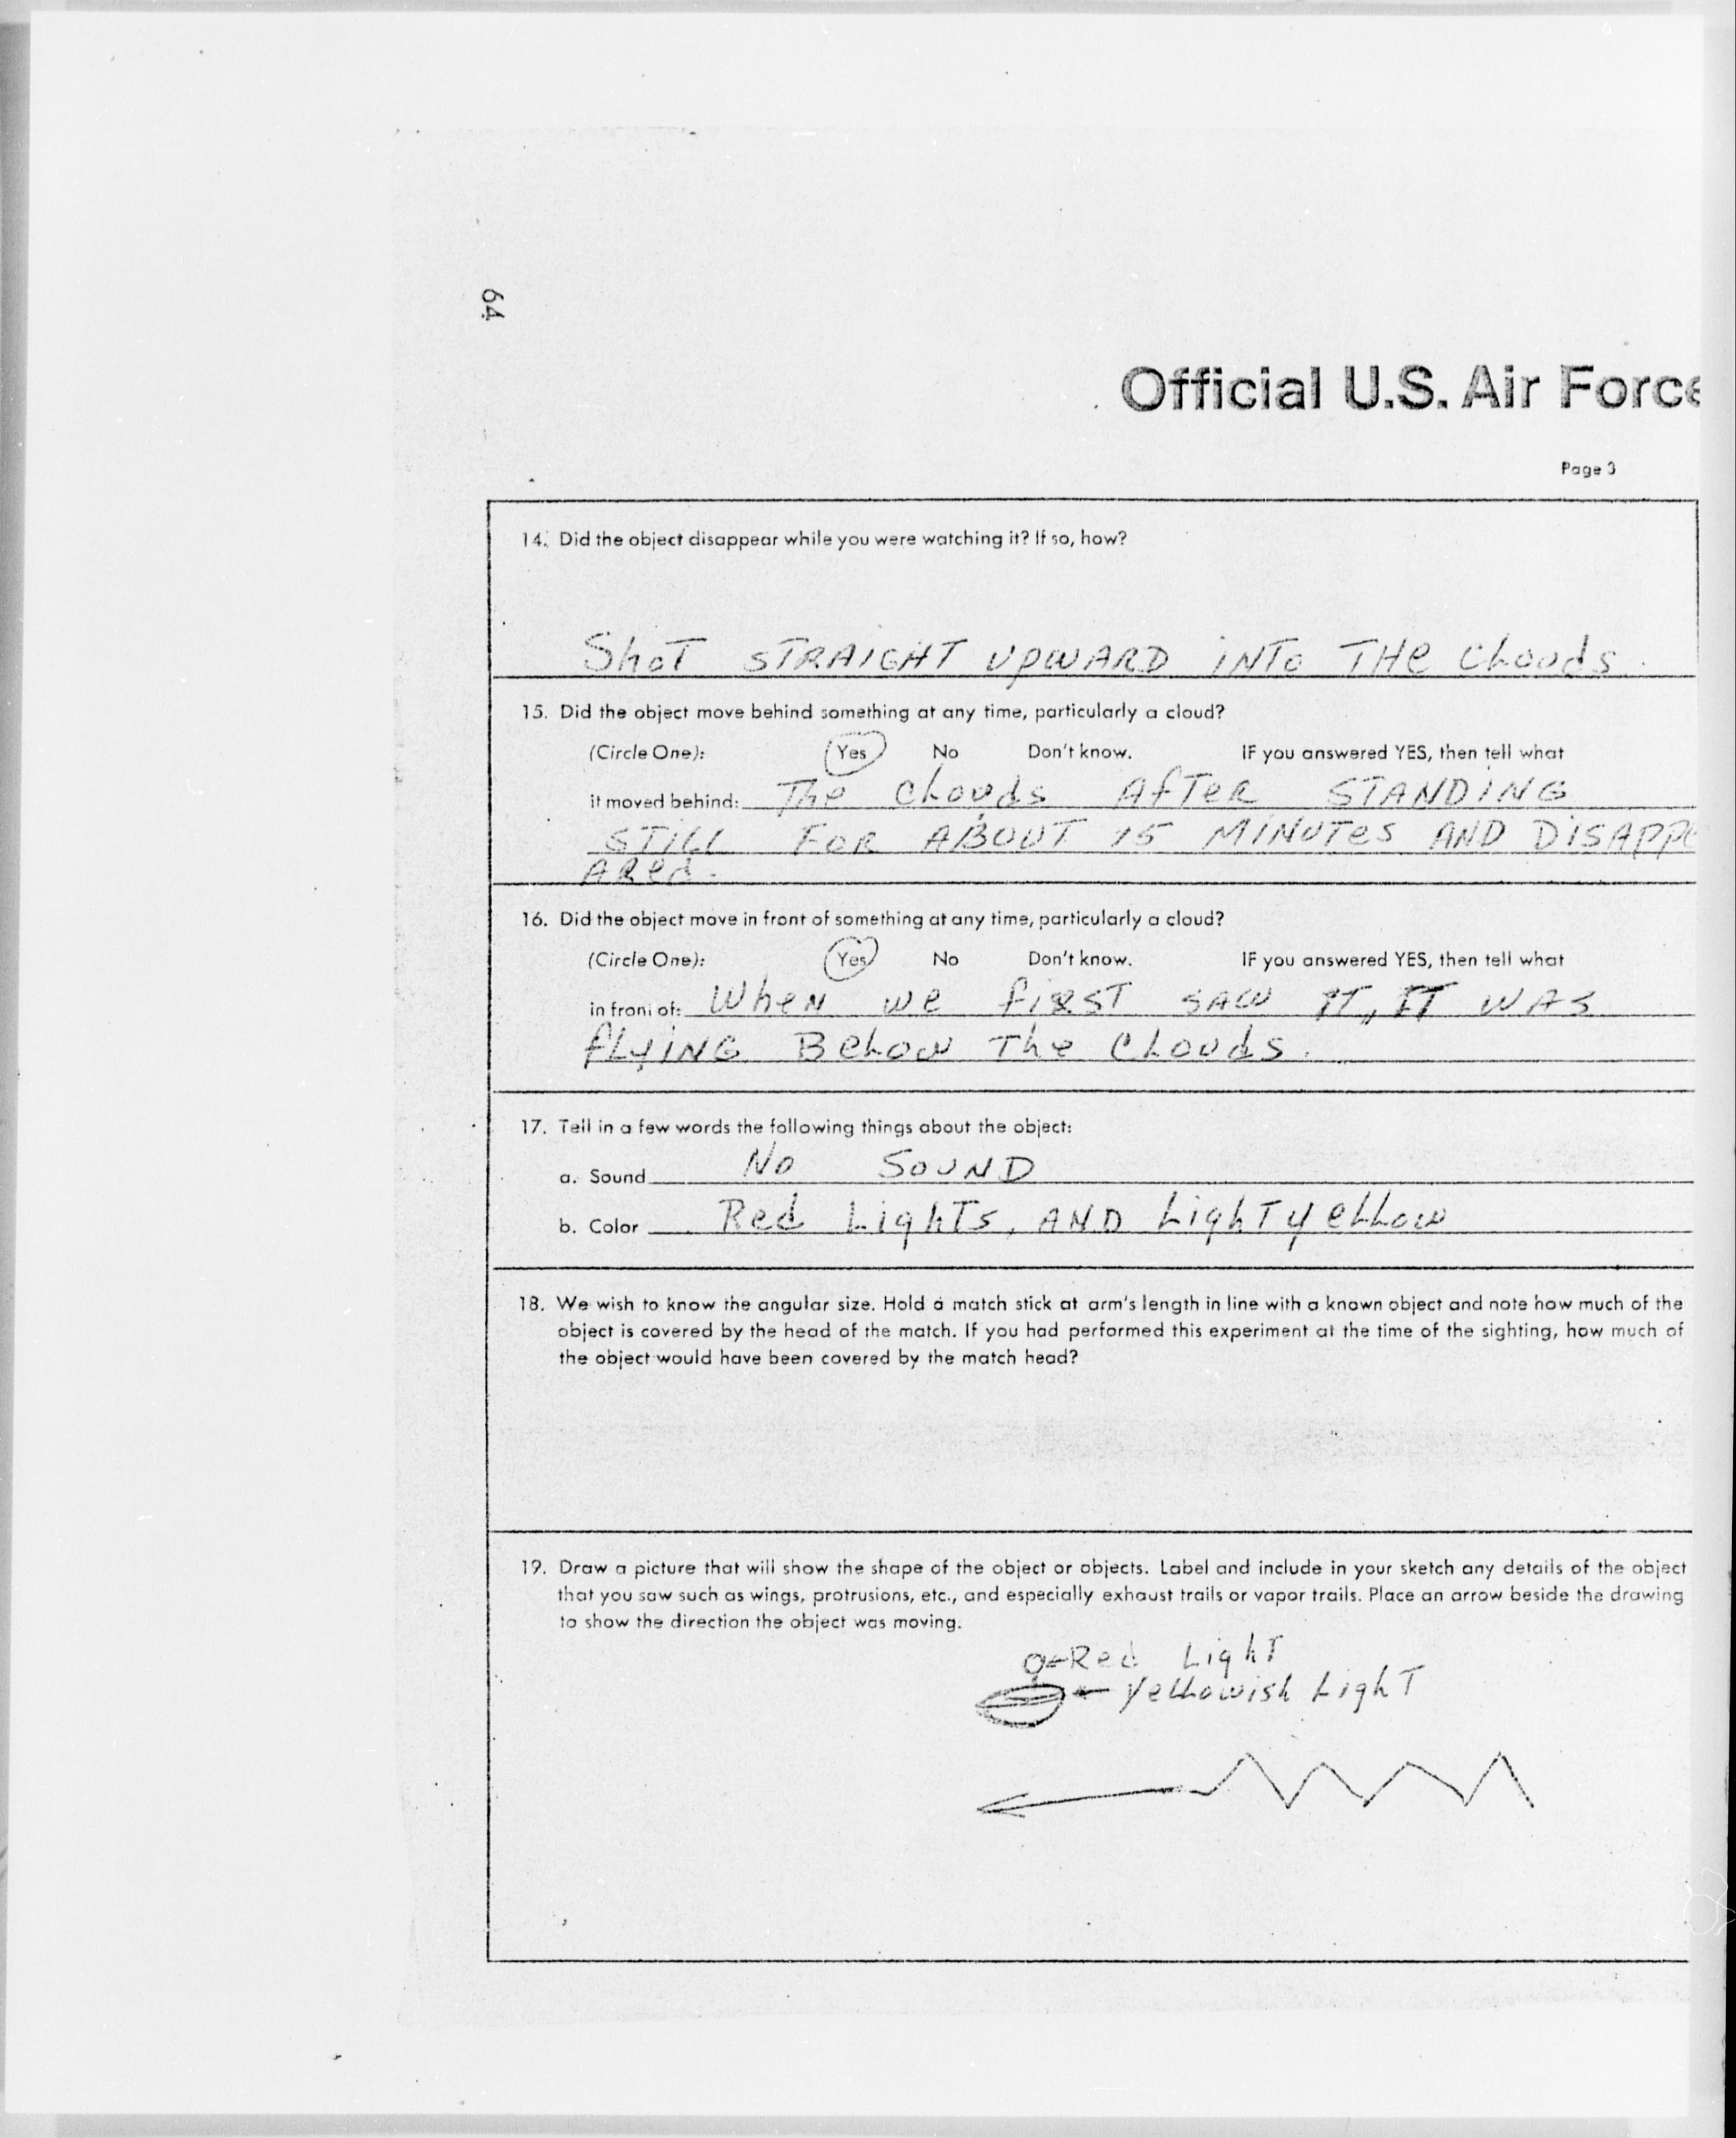 64
Official U.S. Air Force
Page 3
14. Did the object disappear while you were watching it? If so, how?
Shot STRAIGHT UPWARD INTO THE CLouds.
15. Did the object move behind something at any time, particularly a cloud?
(Circle One): Yes No Don't know. IF you answered YES, then tell what
it moved behind: The Clouds AfTER STANDING
STILL FOR ABOUT 15 MINUTes AND DISAPPE
ARed.
16. Did the object move in front of something at any time, particularly a cloud?
(Circle One): Yes No Don't know. IF you answered YES, then tell what
in front of: When we fiRST SAW IT, IT WAS
fLyING BeLow The CLouds.
17. Tell in a few words the following things about the object:
a. Sound No SOUND
b. Color Red LighTs, AND LighT yeLLow
18. We wish to know the angular size. Hold a match stick at arm's length in line with a known object and note how much of the
object is covered by the head of the match. If you had performed this experiment at the time of the sighting, how much of
the object would have been covered by the match head?
19. Draw a picture that will show the shape of the object or objects. Label and include in your sketch any details of the object
that you saw such as wings, protrusions, etc., and especially exhaust trails or vapor trails. Place an arrow beside the drawing
to show the direction the object was moving.
Red LighT
yeLLowish LighT